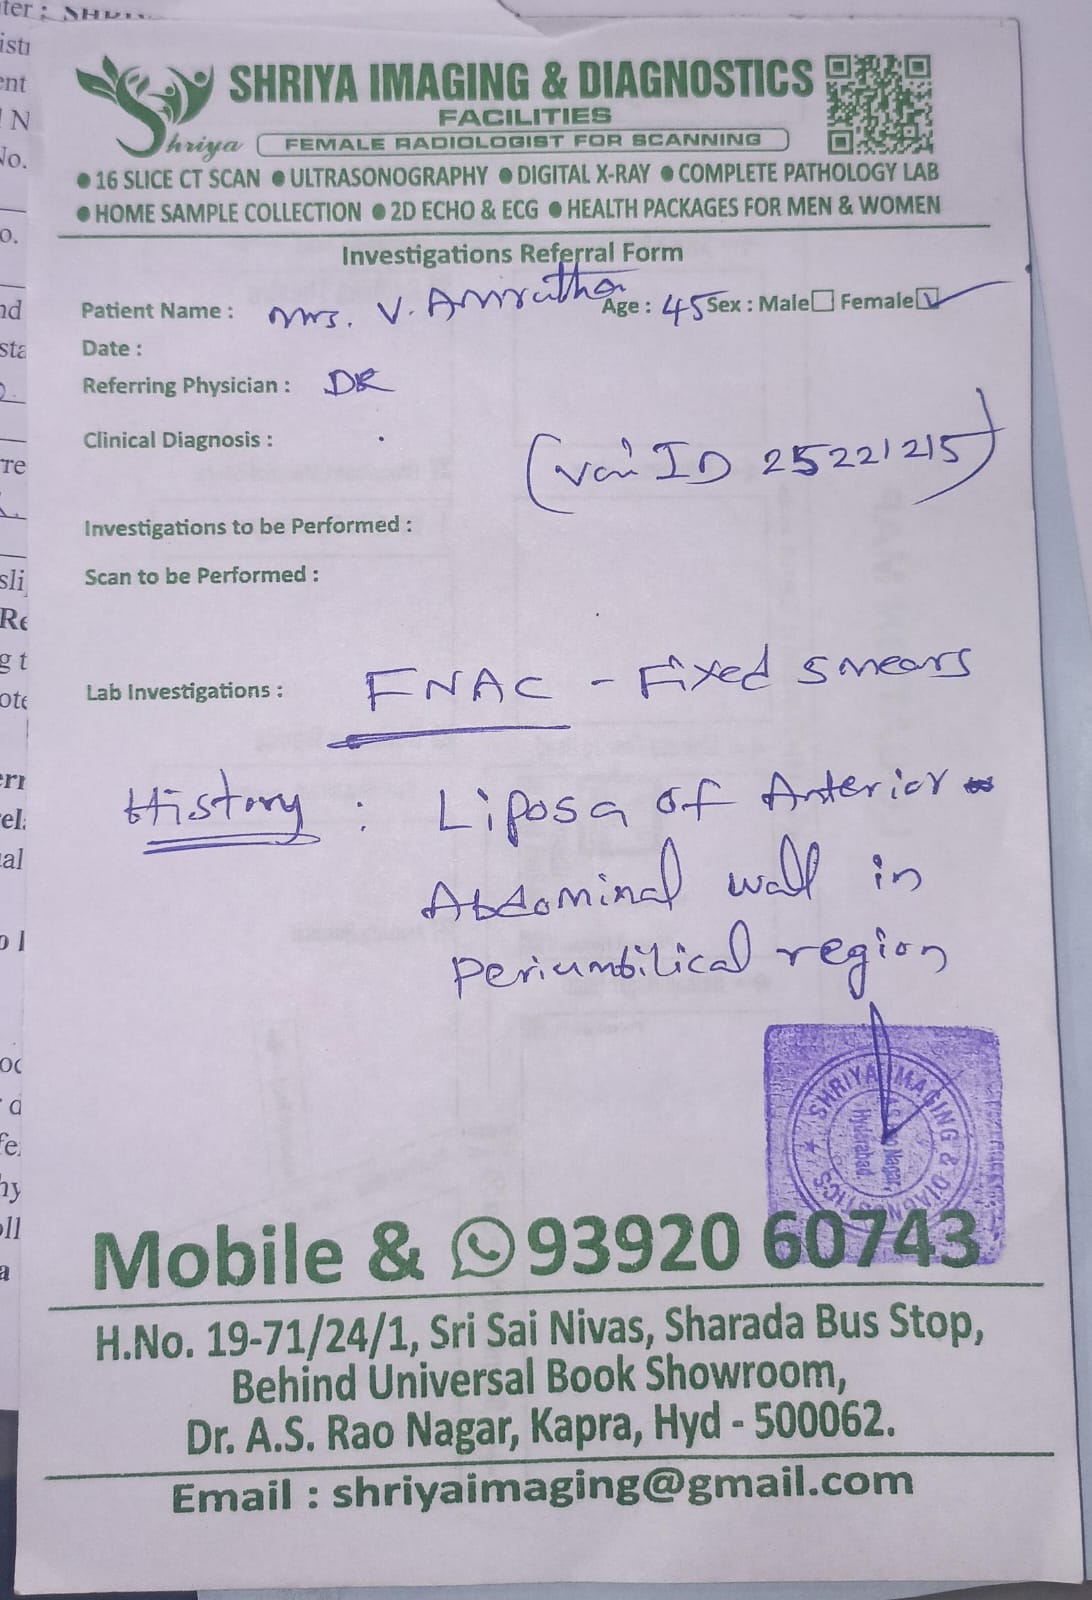 SHRIYA IMAGING & DIAGNOSTICS
FACILITIES
Shriya
FEMALE RADIOLOGIST FOR SCANNING
● 16 SLICE CT SCAN ● ULTRASONOGRAPHY ● DIGITAL X-RAY ● COMPLETE PATHOLOGY LAB
● HOME SAMPLE COLLECTION ● 2D ECHO & ECG ● HEALTH PACKAGES FOR MEN & WOMEN
Investigations Referral Form
Patient Name : Mrs. V. Amrutha Age : 45 Sex : Male Female
Date :
Referring Physician : DR
Clinical Diagnosis :
ID 25221215)
Investigations to be Performed :
Scan to be Performed :
Lab Investigations : FNAC - Fixed smears
History : Liposa of Anterior
Abdominal wall in
Periumbilical region
SHRIYA IMAGING & DIAGNOSTICS
Hyderabad
Mobile & 93920 60743
H.No. 19-71/24/1, Sri Sai Nivas, Sharada Bus Stop,
Behind Universal Book Showroom,
Dr. A.S. Rao Nagar, Kapra, Hyd - 500062.
Email : shriyaimaging@gmail.com